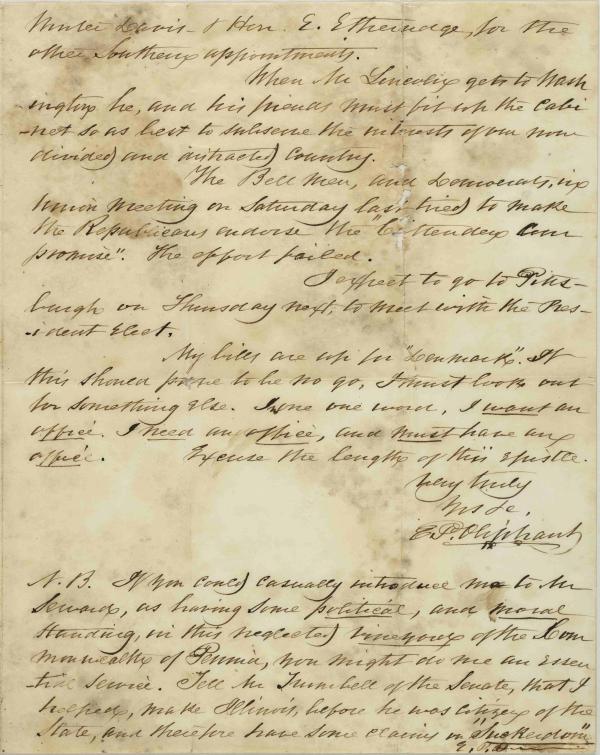 Winter Davis & Hon. E. Etheridge, for the
other Southern appointments.
When Mr Lincoln gets to Wash
ington he, and his friends must fix up the Cabi
-net so as best to subserve the interests of our now
divided and distracted Country.
The Bell men, and Democrats, in
Union meeting on Saturday last tried to make
the Republicans endorse the "Crittenden Com
promise". The effort failed.
I expect to go to Pitts-
burgh on Thursday next, to meet with the Pres-
-ident Elect.
My bills are up for "Denmark". If
this should prove to be no go, I must look out
for something Else. In one word, I want an
office. I need an office, and must have an
office. Excuse the length of this Epistle.
Very truly
Yrs &c,
E. P. Oliphant
N. B. If you could casually introduce me to Mr
Seward, as having some political, and moral
standing, in this neglected vineyard of the Com
monwealth of Pennia, you might do me an Essen
-tial service. Tell Mr Trumbell of the Senate, that I
helped, make Illinois, before he was citizen of the
State, and therefore have some claims in "Suckerdom"
E. P. O.